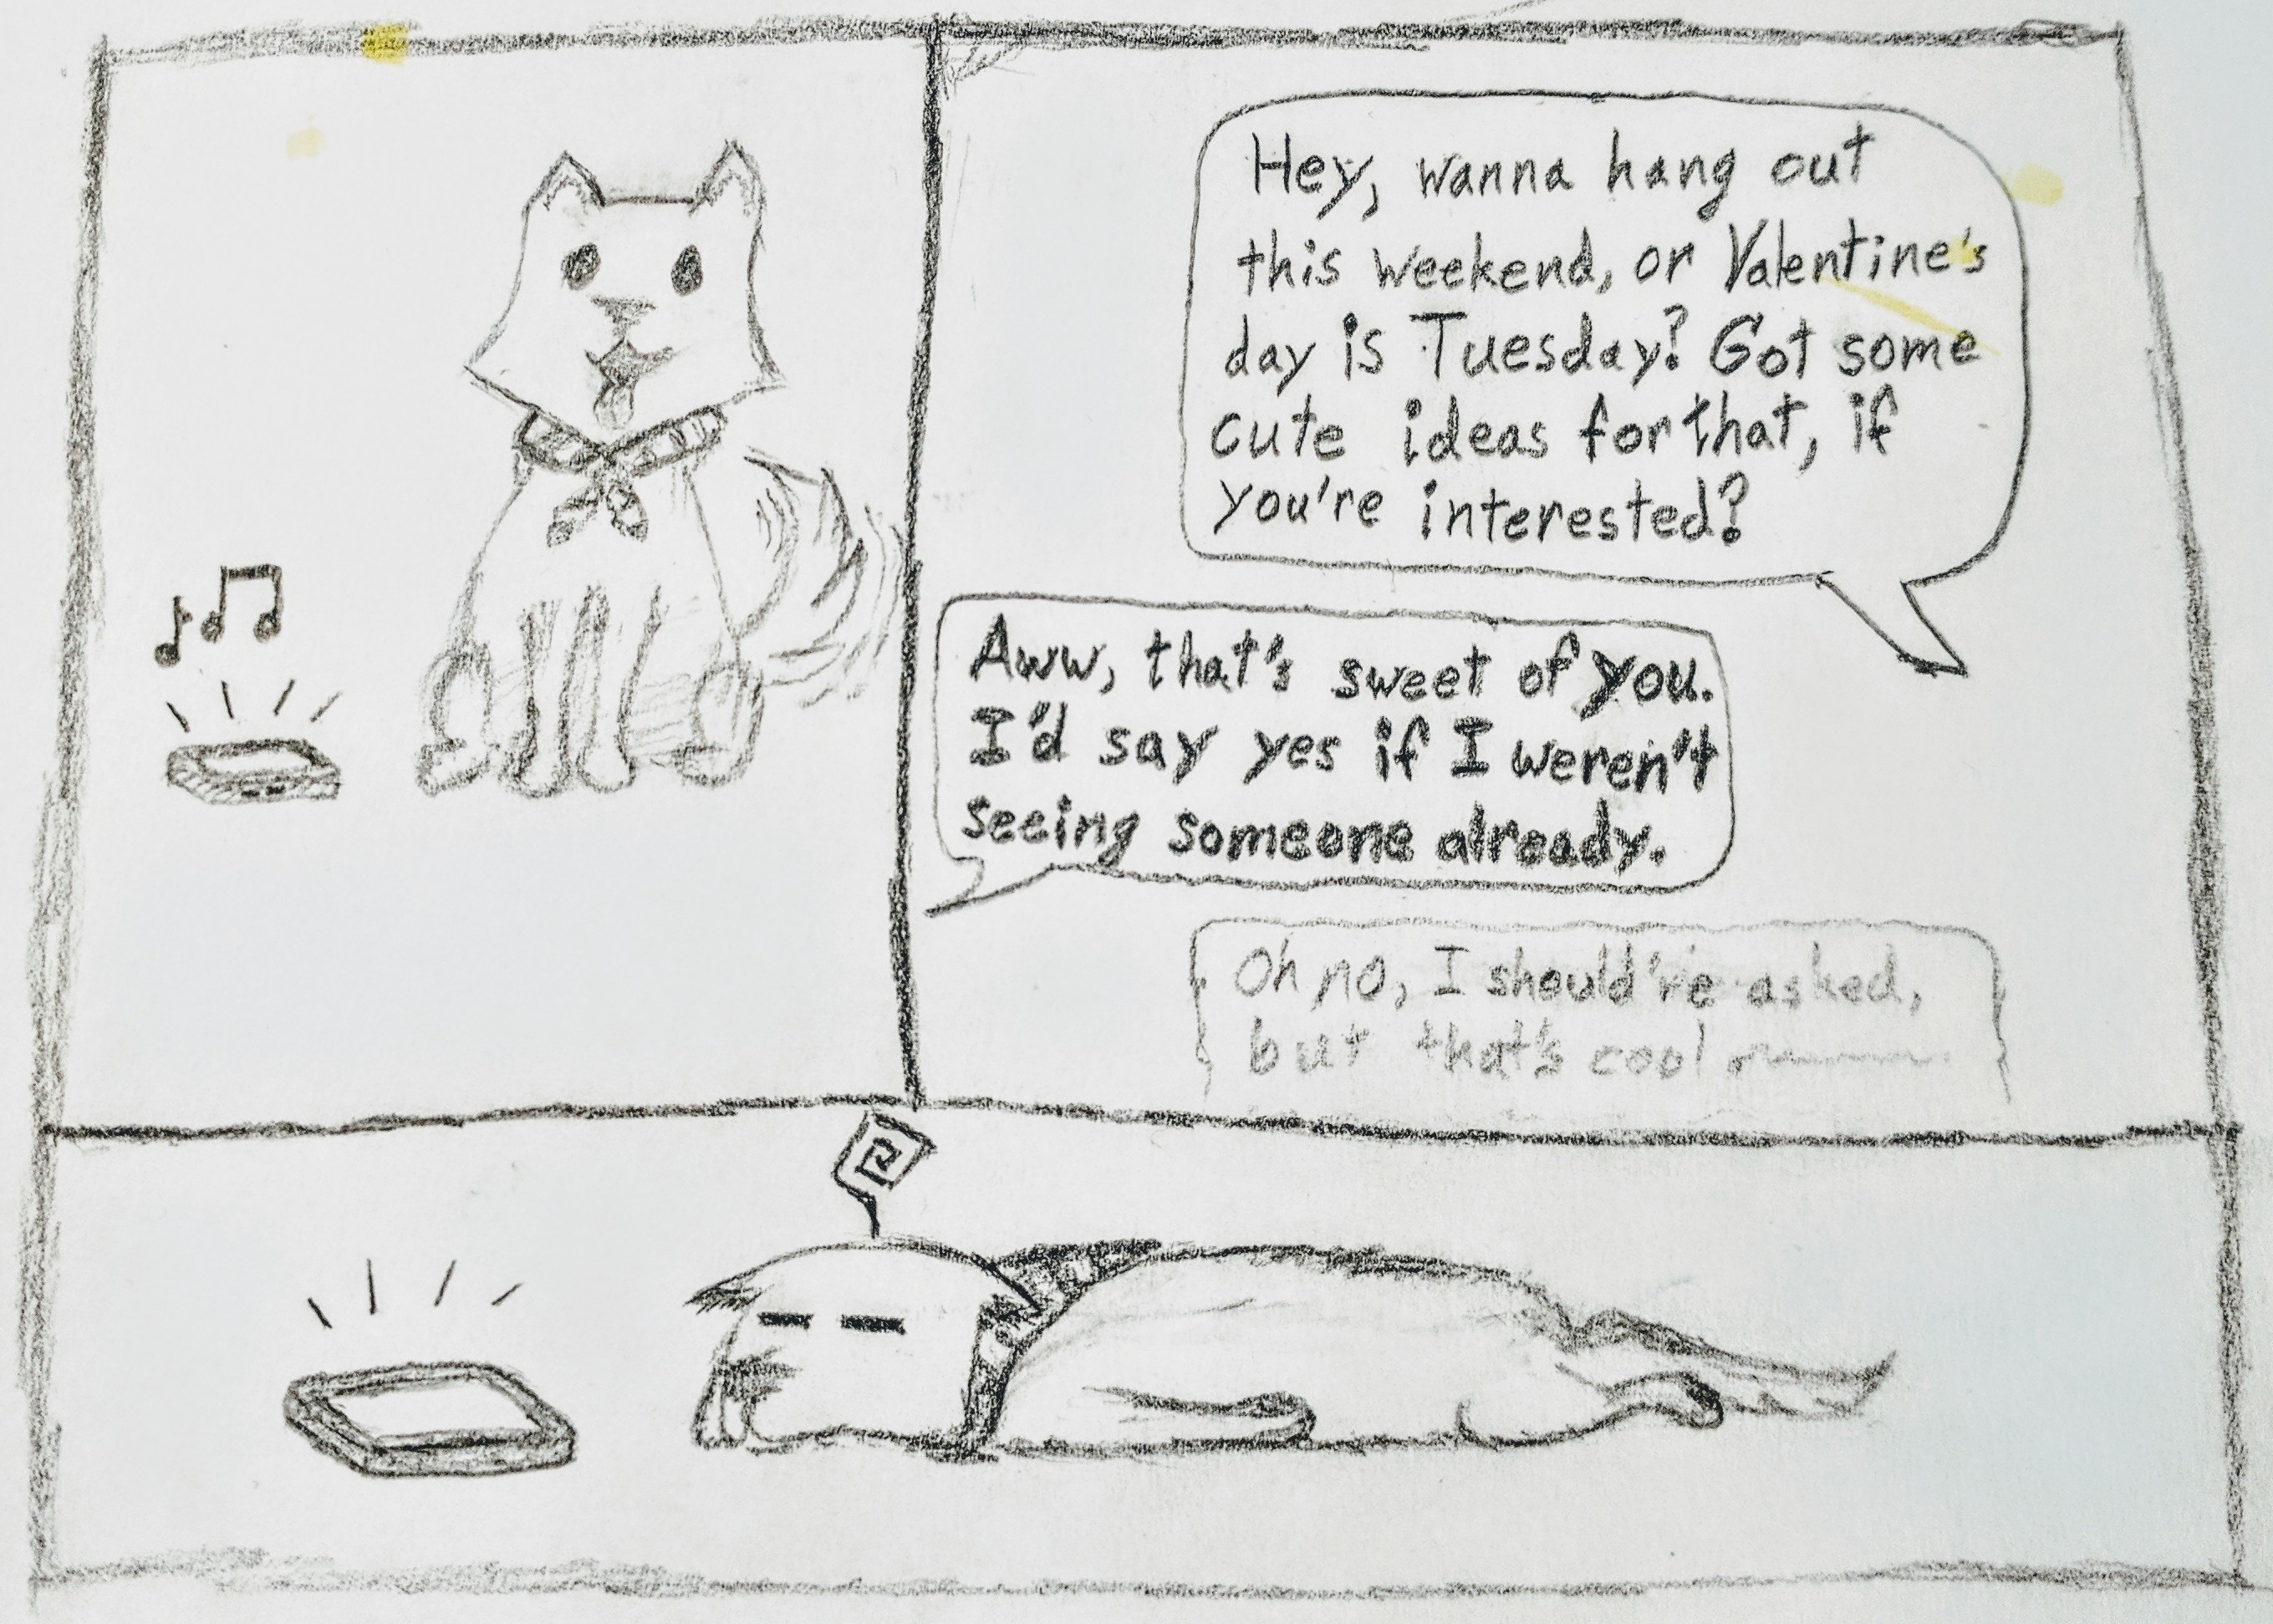 Hey, wanna hang out
this weekend, or Valentine's
day is Tuesday? Got some
cute ideas for that, if
you're interested?
Aww, that's sweet of you.
I'd say yes if I weren't
seeing someone already.
Oh no, I should've asked,
but that's cool